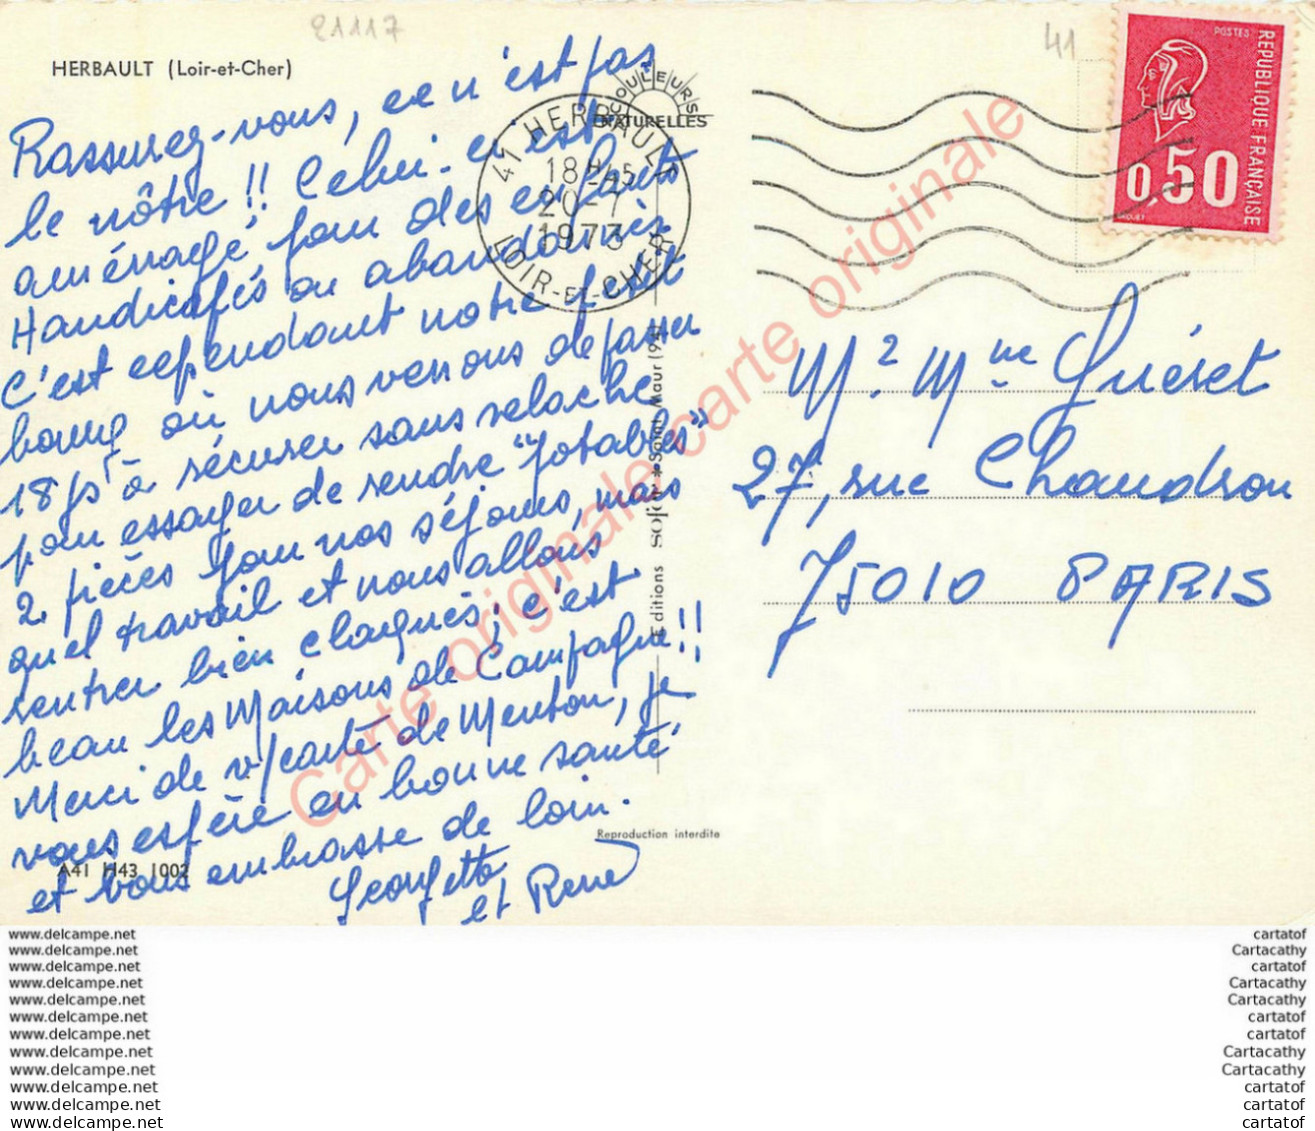 21117
41
HERBAULT (Loir-et-Cher)
COULEURS
NATURELLES
41 HERBAULT
18H45
20-7
1973
LOIR-ET-CHER
POSTES
REPUBLIQUE FRANÇAISE
0,50
Rassurez-vous, ce n'est pas
le nôtre !! Celui-ci est
aménagé pour des enfants
Handicapés ou abandonnés
C'est cependant notre petit
bourg où nous venons de passer
18 js à récurer sans relache
pour essayer de rendre "potables"
2 pièces pour nos séjours, mais
quel travail et nous allons
rentrer bien claqués ; c'est
beau les Maisons de Campagne !!
Merci de v/carte de Menton, je
vous espère en bonne santé
et vous embrasse de loin.
Georgette
et René
Mr Mme Guéret
27, rue Chaudron
75010 PARIS
Editions sofer * Saint-Maur (94)
Reproduction interdite
A41 H43 1002
Carte originale carte originale carte originale
www.delcampe.net cartatof
www.delcampe.net Cartacathy
www.delcampe.net cartatof
www.delcampe.net Cartacathy
www.delcampe.net Cartacathy
www.delcampe.net cartatof
www.delcampe.net cartatof
www.delcampe.net Cartacathy
www.delcampe.net Cartacathy
www.delcampe.net cartatof
www.delcampe.net cartatof
www.delcampe.net cartatof